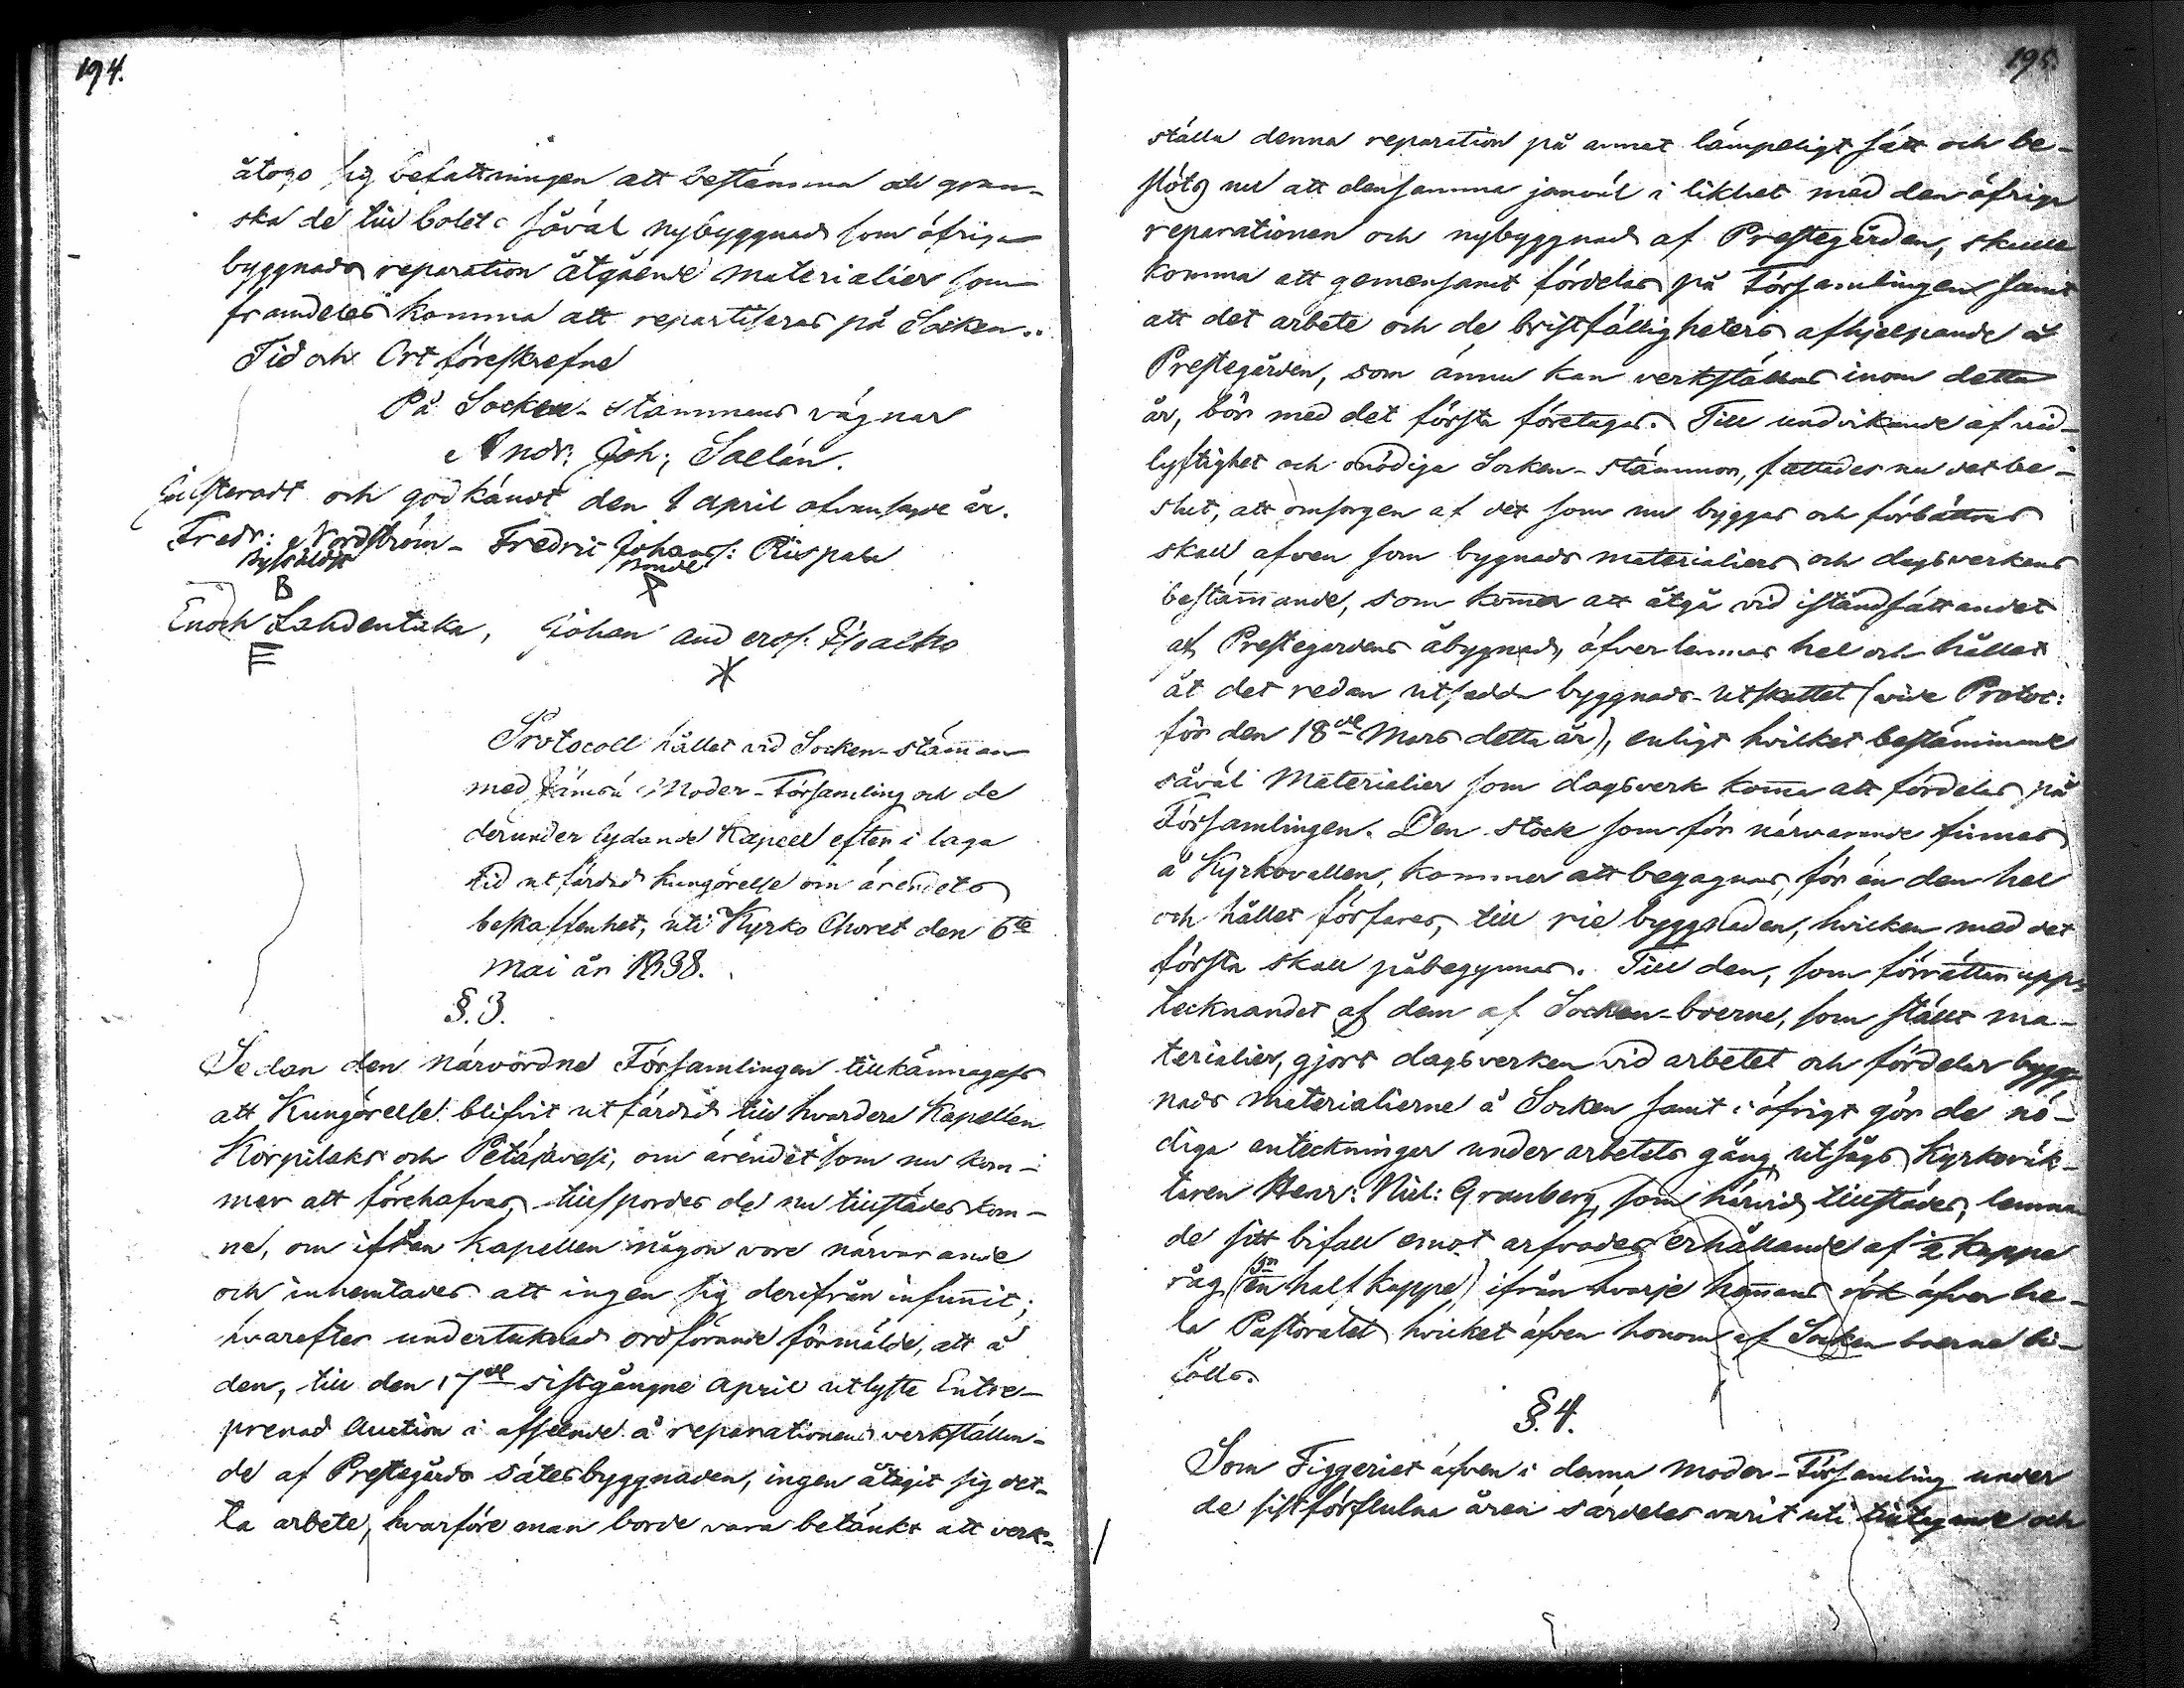 194.
åtogo sig befattningen att bestämma och gran-
ska de till bolets såväl nybyggnad som öfriga
byggnads reparation åtgående materialier som
framdeles komma att repartiseras på Socken..
Tid och Ort föreskrefne
På Socken-stämmans vägnar
Andr: Joh: Saelán.
Justeradt och godkändt den 1 April ofvansagde år.
Fredr: Nordström - Fredric Johanss: Rüspala
Bonde
B
Enoch Lahdentaka, Johan anderss:
F
Protocoll hållet vid Socken-stämman
med Jämsä Moder-Församling och de
derunder lydande Kapell efter i laga
tid utfärdad kungörelse om ärendets
beskaffenhet, uti Kyrko Choret den 6te
Mai år 1838.
§.3.
Sedan den närvordne Församlingen tillkännagafs
att Kungörelse blifvit utfärdad till hvardera Kapellen
Korpilaks och Petäjävesi, om ärendet som nu kom-
mer att förehafvas, tillspordes de nu tillstädes kom-
ne, om ifrån Kapellen någon vore närvarande
och inhemtades att ingen sig derifrån infunnit;
hvarefter undertecknad ordförande förmälde, att å
den, till den 17de sistgångne April utlyste Entre-
prenad Auction i afseende å reparationens verkställan-
de af Prestegårds sätesbyggnaden, ingen åtagit sig det-
ta arbete, hvarföre man borde vara betänkt att verk-
195.
ställa denna reparation på annat lämpeligt sätt och be-
slöts nu att densamma jemväl i likhet med den öfriga
reparationen och nybyggnad af Prestegården, skulle
komma att gemensamt fördelas på Församlingen samt
att det arbete och de bristfälligheters afhjelpande å
Prestegården, som ännu kan verkställas inom detta
år, bör med det första företagas. Till undvikande af vid-
lyftighet och onödiga Socken-stämmor, fattades nu det be-
slut, att omsorgen af det som nu bygges och förbättras
skall äfven som bygnads materialiers och dagsverkens
bestämmande, som komma att åtgå vid iståndsättandet
af Prestegardens åbygnad, öfverlemnas hel och hållet
åt det redan utsedda byggnads-Utskottet (vide Protoc:
för den 18de Mars detta år), enligt hvilket bestämmande
såväl Materialier som dagsverk komma att fördelas på
Församlingen. Den stock som för närvarande finnes
å Kyrkovallen, kommer att begagnas, för än den hel
och hållet förfares, till rie byggnaden, hvilken med det
första skall påbegynnas. Till den, som förrättar upp-
tecknandet af dem af Socken-boerne, som ställt ma-
terialier, gjort dagsverken vid arbetet och fördelar bygg-
nads materialierne å Socken samt i öfrigt gör de nö-
diga anteckningar under arbetets gång, utsågs Kyrkoväk-
taren Henr: Niel: Granberg, som härvid tillstädes, lemna-
de sitt bifall emot arfvodes erhållande af ½ kappe
råg (en half kappe) ifrån hvarje hemmans rök öfver he-
la Pastoratet hvilket äfven honom af Socken boerne bi-
fölls.
§.4.
Som Tiggeriet äfven i denna Moder-Församling under
de sistförflutna åren särdeles varit uti tilltagande och